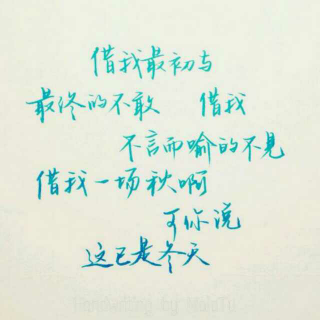 借我最初与
最终的不敢 借我
不言而喻的不见
借我一场秋啊
可你说
这已是冬天